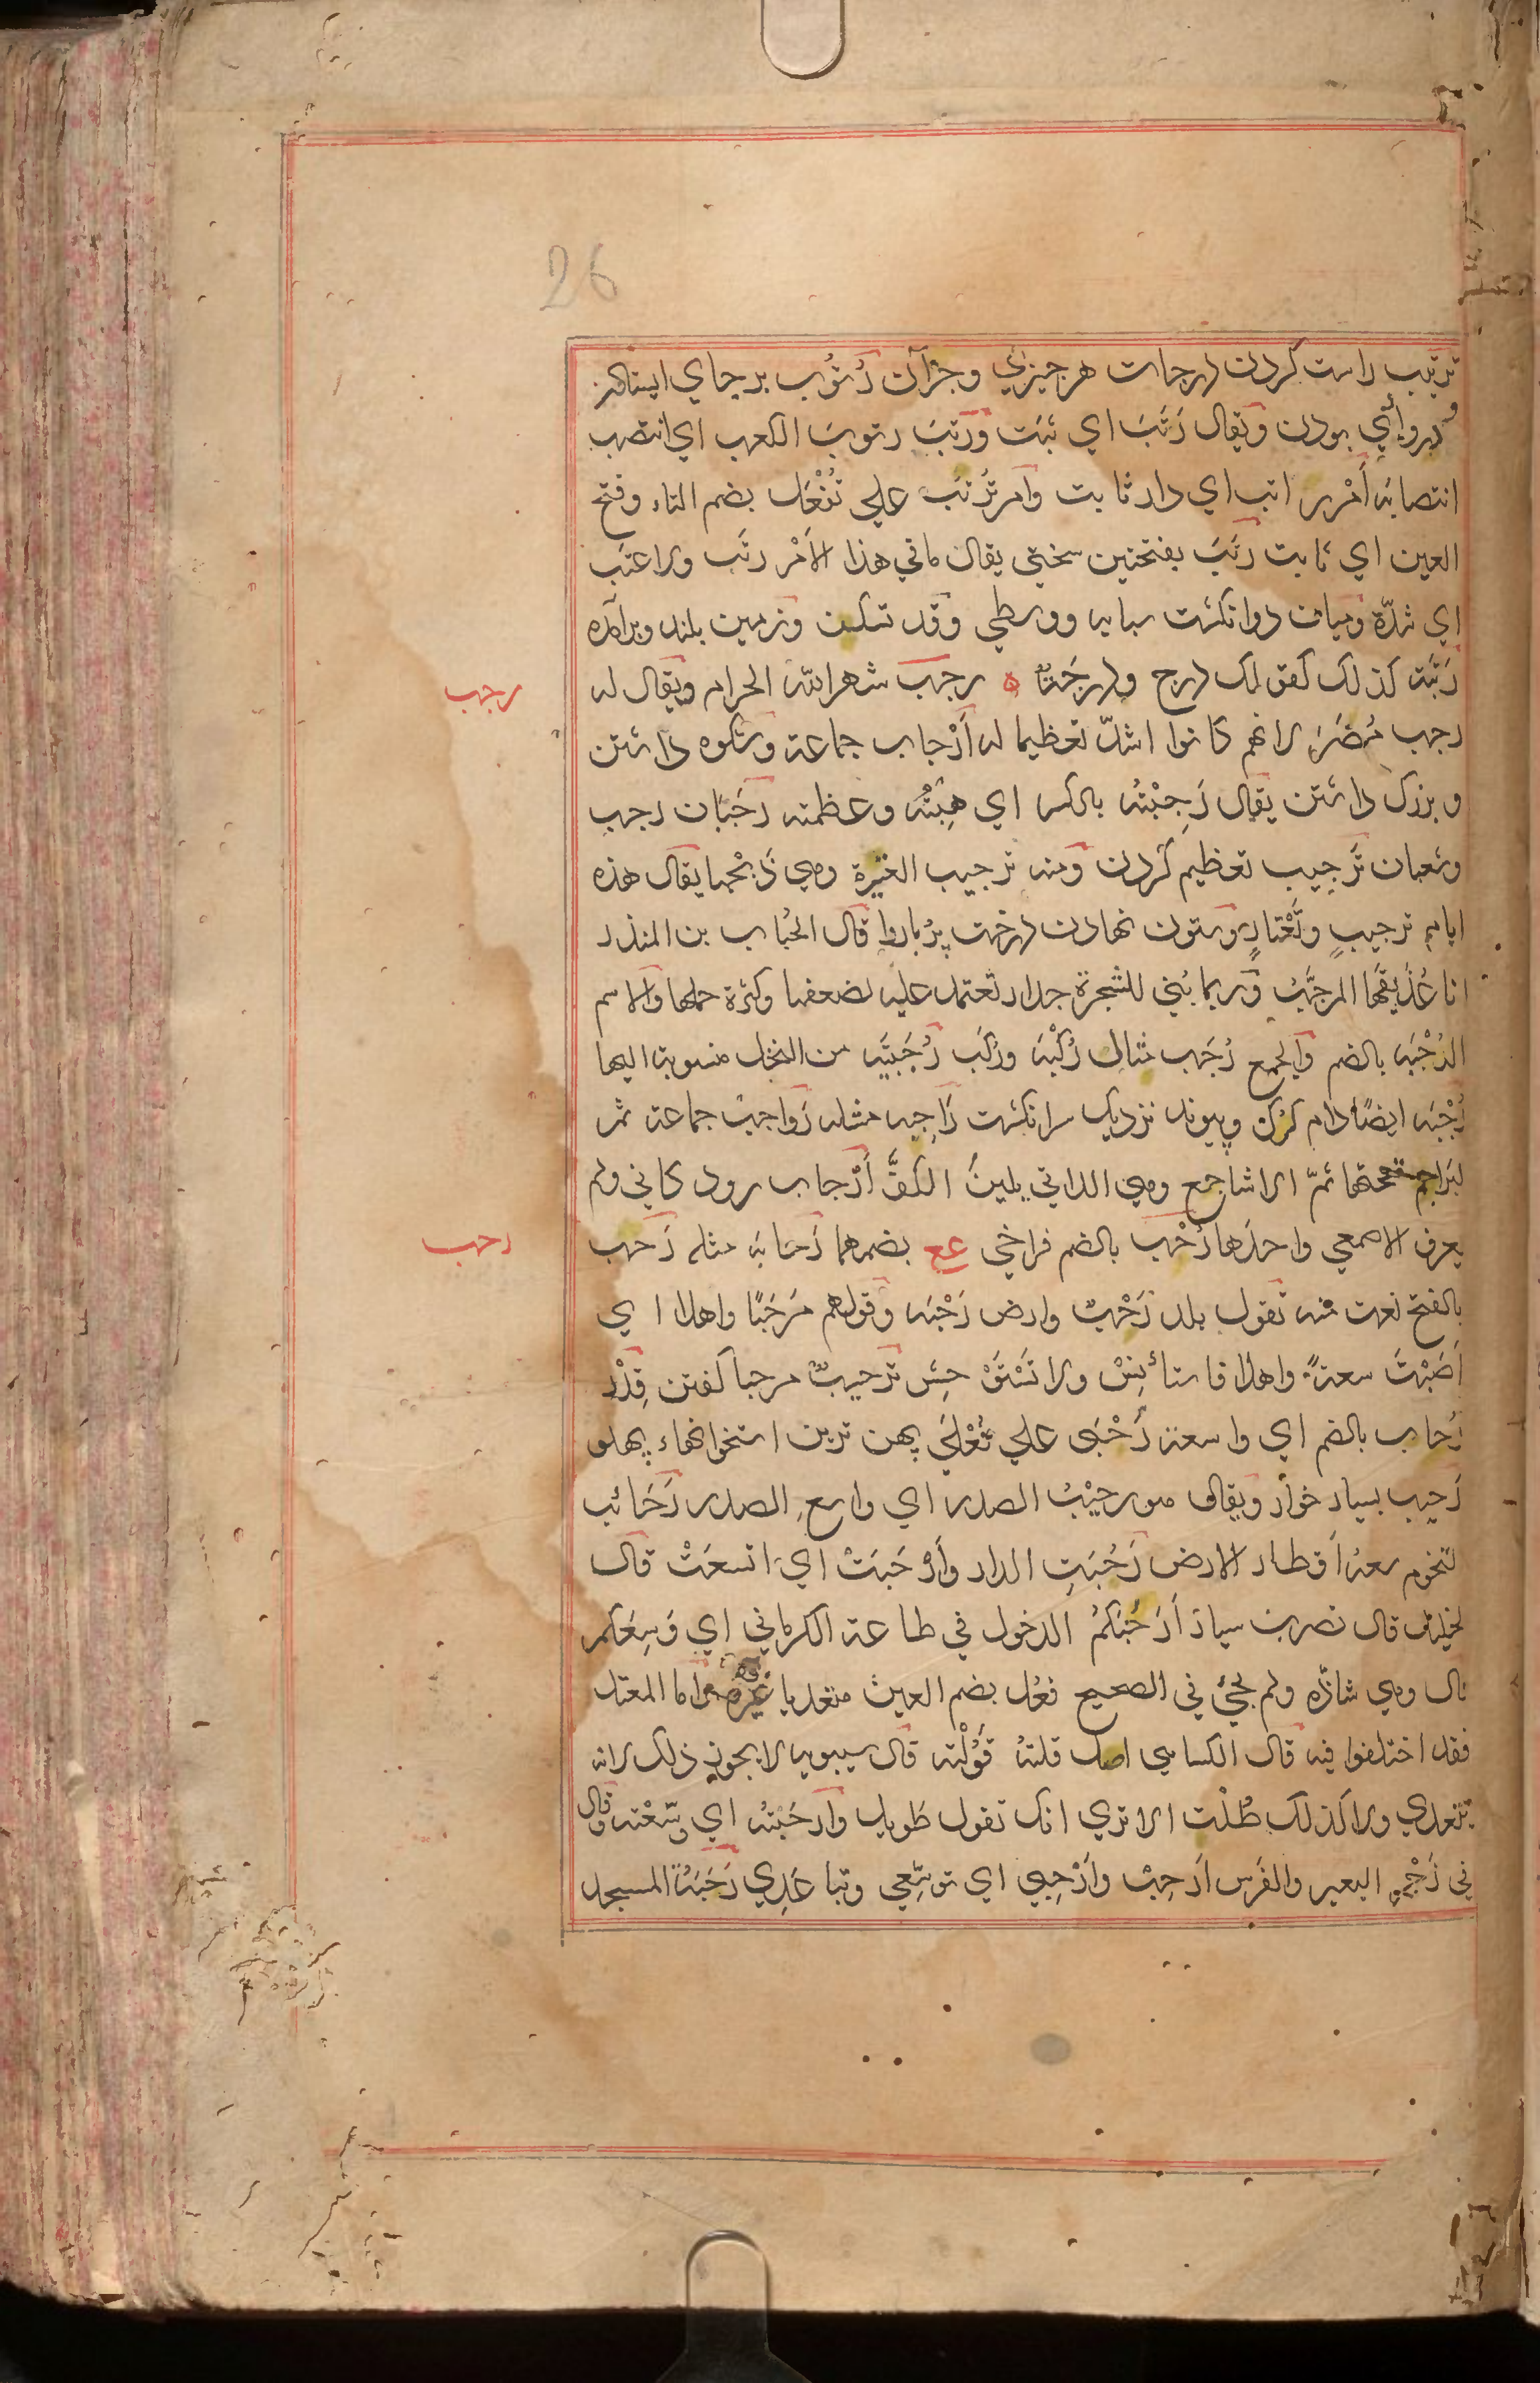 26
ترتيب راست كردن درجات هر چيزي و جز آن رُتُوب بر جاي ايستادن
و بر وأي بودن ويقال رَتَبَ اي ثبت ورَتَبَ رتوبَ الكعب اي انتصب
انتصابه أَمْر راتب اي دار ثابت وامر تُرْتَب علي تُفْعَل بضم التاء وفتح
العين اي ثابت رَتَبَ بفتحتين سختي يقال ما في هذا الأَمْر رتَب ولا عتَب
اي شدّة وميان دو انگشت سبابه ووسطي وقد تسكن وزمين بلند وبرآمده
رَتَبَة كذلك كقولك درج ودرجة ه رجب شهر الله الحرام ويقال له
رجب
رجب مُضَرَ لانهم كانوا اشدّ تعظيما له أَرْجاب جماعة وشكوه داشتن
و بزرك داشتن يقال رَجِبْتُه بالكسر اي هِبْتُه وعظمته رَجَبَان رجب
وشعبان تَرجيب تعظيم كردن ومنه ترجيب العتيرة وهي ذَبْحها يقال هذه
ايام ترجيبٍ وتَعْتارٍ وستون نهادن درخت پُربار را قال الحُبَاب بن المنذر
انا عُذَيقُها المرجَّبُ وربما بُني للشجرة جدار تعتمد عليه لضعفها وكثرة حملها والاسم
الرُجْبَه بالضم والجمع رُجَب مثال رُكْبَه ورُكَب رُجَبيّه من النخل منسوبة اليها
رُجْبَه ايضًا دام گرگ وپيوند نزديك سر انگشت رَاجِبه مثله رَواجب جماعة ثم
لبَراجم تحتها ثمّ الاشاجع وهي اللاتي يلينَ الكفَّ أَرْجاب رود كاني ولم
يعرف الاصمعي واحدَها رُحْب بالضم فراخي عع بضمهما رَحَابَه مثله رَحب
رحب
بالفتح نعت منه تقول بلد رَحْبٌ وارض رَحْبَه وقولهم مَرْحَبًا واهلا اي
أَصَبْتَ سعةً واهلا فاستأنِسْ ولا تَسْتَوْحِش تَرحيبٌ مرحبا كفتن قِدْر
رُحاب بالضم اي واسعة رُحْبَى علي فُعْلَى پهن ترين استخوانهاء پهلو
رَحيب بسيار خوار ويقال هو رحيْبُ الصدر اي واسعِ الصدر رَحَائب
لتخوم سعة أَقطار الارض رَحُبَتِ الدار وأَرْحَبَتْ اي اتسعَتْ قال
لخليل قال نصر بن سيار أَرَحُبَكُمُ الدخول في طاعة الكرماني اي وَسِعَكم
قال وهي شاذّه ولم يجئ في الصحيح فَعُل بضم العين متعديا غيره واما المعتل
فقد اختلفوا فيه قال الكسائي اصل قلتُه قَوُلْته قال سيبويه لا يجوز ذلك لانه
يتعدي ولا كذلك طُلْت الا تري انك تقول طويل وأَرحَبْتُه اي وَسّعْته وقال
في زَجْرِ البعير والفَرس أرحِبْ وأَرْحِبي اي توسّعِي وتباعَدِي رَحَبَةُ المسجد